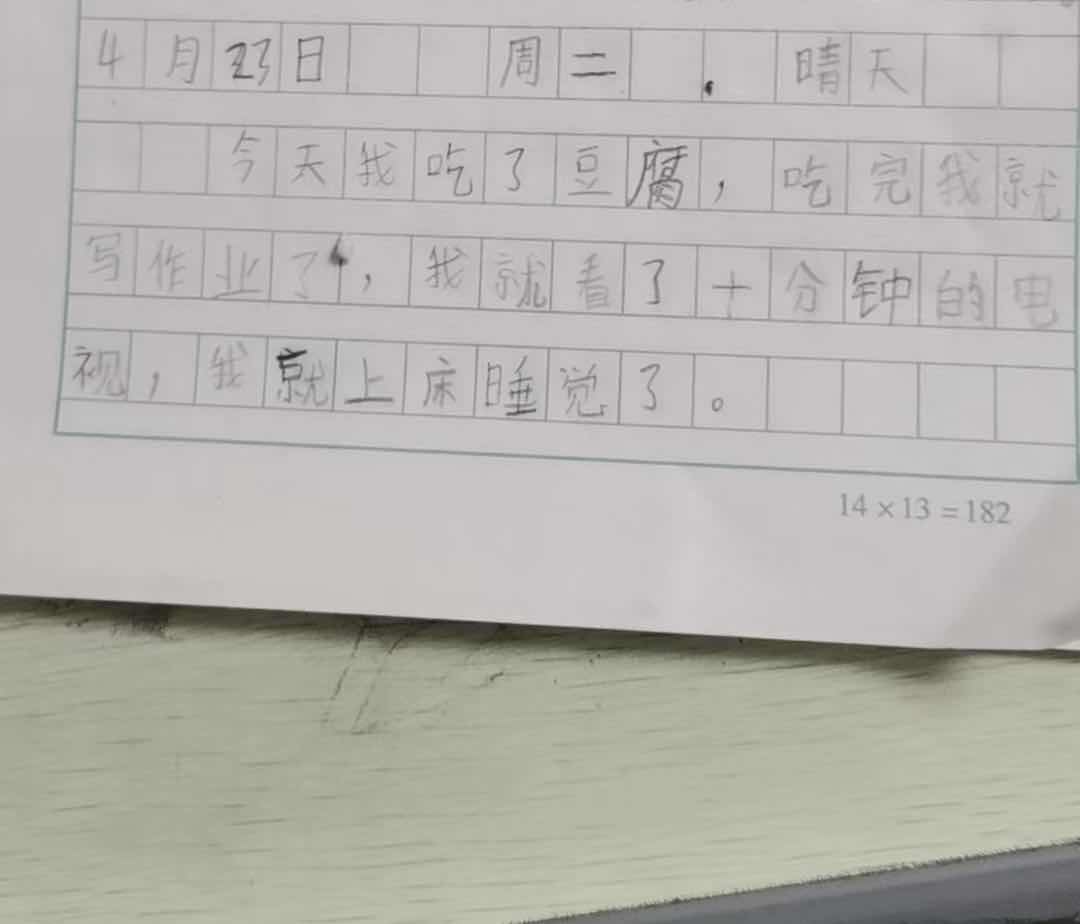 4月23日 周二 . 晴天
今天我吃了豆腐，吃完我就
写作业了，我就看了十分钟的电
视，我就上床睡觉了。
14×13=182